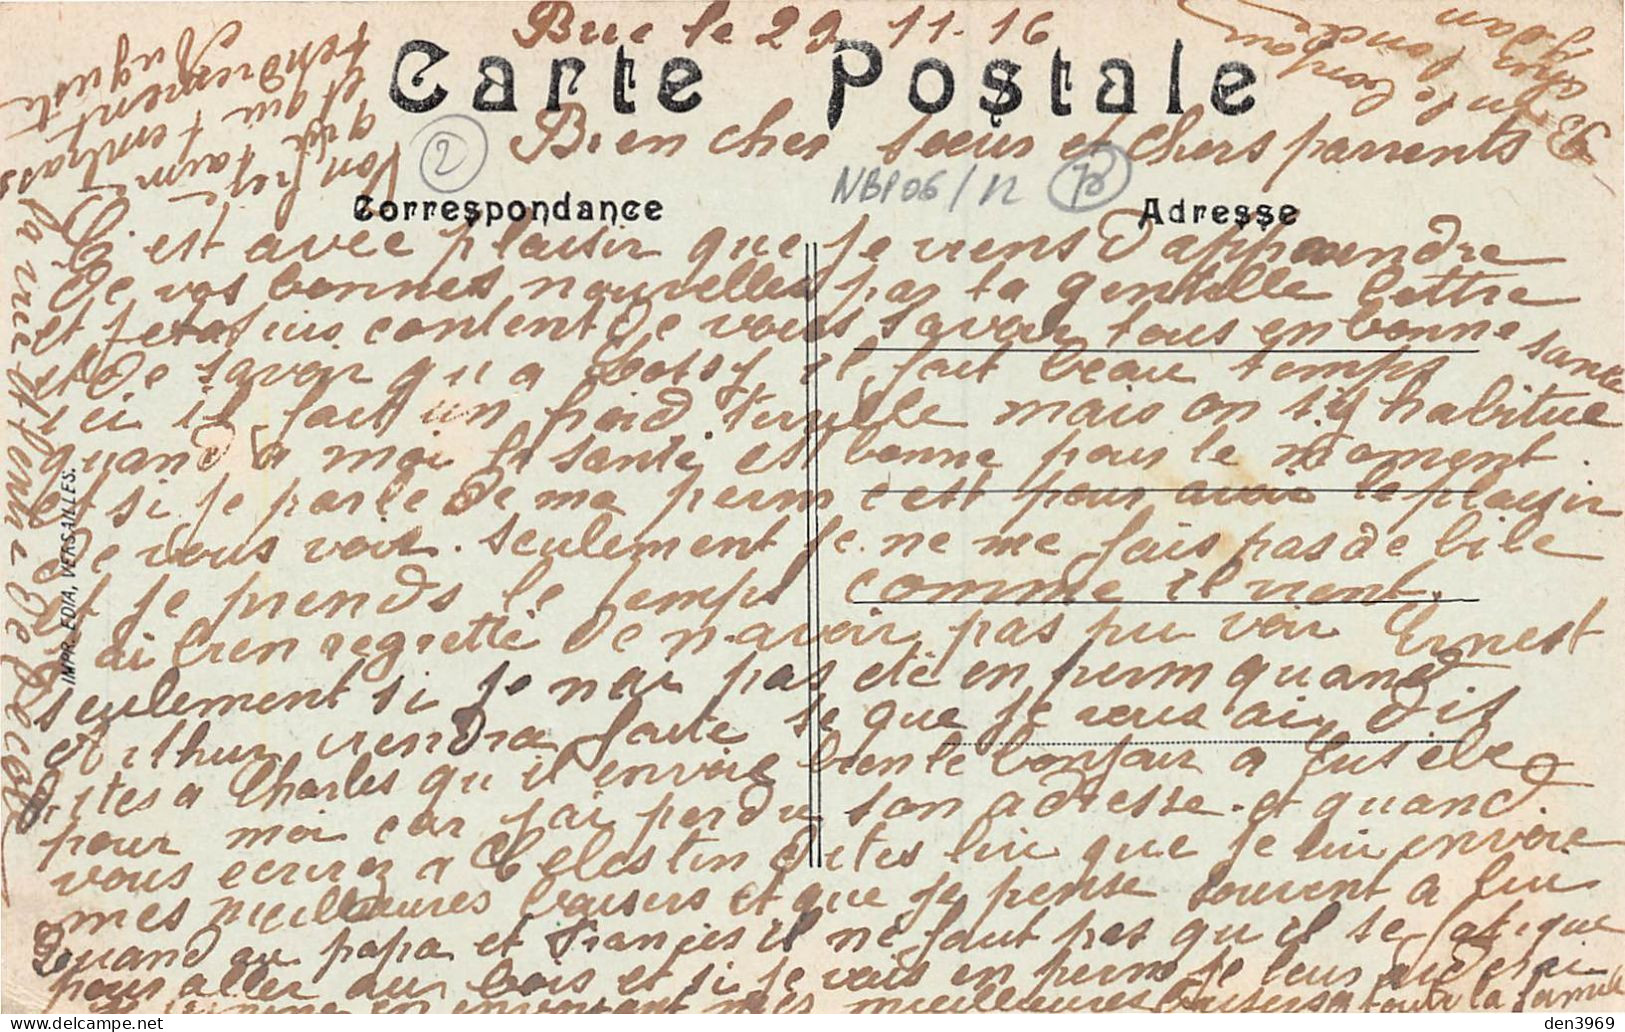 Buc le 29 11-16
Carte Postale
Bien cher soeur et chers parrents
NBP06/12
2
Correspondance
Adresse
C'est avec plaisir que je viens d'apprendre
de vos bonnes nouvelles par ta gentille lettre
et je suis content de vous savoir tous en bonne santé
et de savoir qu'a il fait beau temps
ici il fait un froid terrible mais on s'y habitue
quand a moi la santé est bonne pour le moment.
et si je parle de ma perm c'est pour avoir le plaisir
de vous voir. seulement je ne me fais pas de bile
et je prends le temps comme il vient.
J'ai bien regretté de n'avoir pas pu voir Ernest
seulement si je n'ai pas été en perm quand
Arthur viendra faite se que je vous ai dit
dites a Charles qu'il envoie bien le bonjour a Eusebe
pour moi car j'ai perdu son adresse. et quand
vous ecrirez a Celestin dites lui que je lui envoie
mes meilleures baisers et que je pense souvent a lui
Quand au papa et François il ne faut pas qu'il se fatigue
pour aller au bois et si je vais en perm je leur aiderai
Je termine en envoyant mes meilleures baisers a toute la famille
Ton frère qui t'aime
et qui t'embrasse
tendrement
Auguste
IMPR. EDIA, VERSAILLES.
den3969